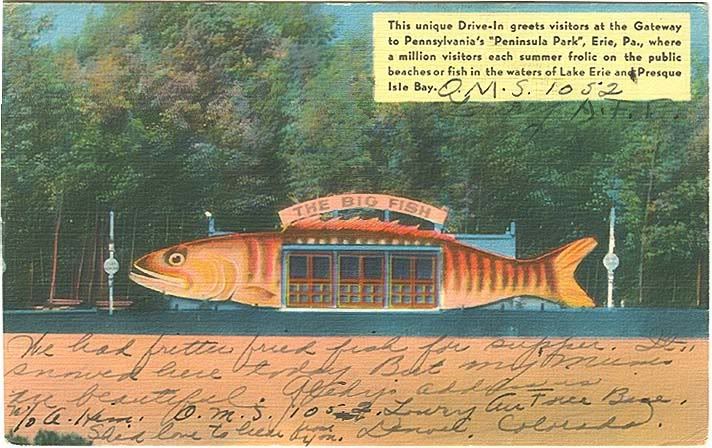 This unique Drive-In greets visitors at the Gateway
to Pennsylvania's "Peninsula Park", Erie, Pa., where
a million visitors each summer frolic on the public
beaches or fish in the waters of Lake Erie and Presque
Isle Bay. O.M.S. 1052
THE BIG FISH
We had fritter fried fish for supper. It
snowed here today But my mums
are beautiful. address is
% A. O.M.S. 1052 Lowry Air Force Base.
She'd love to hear from you. Denver, Colorado.